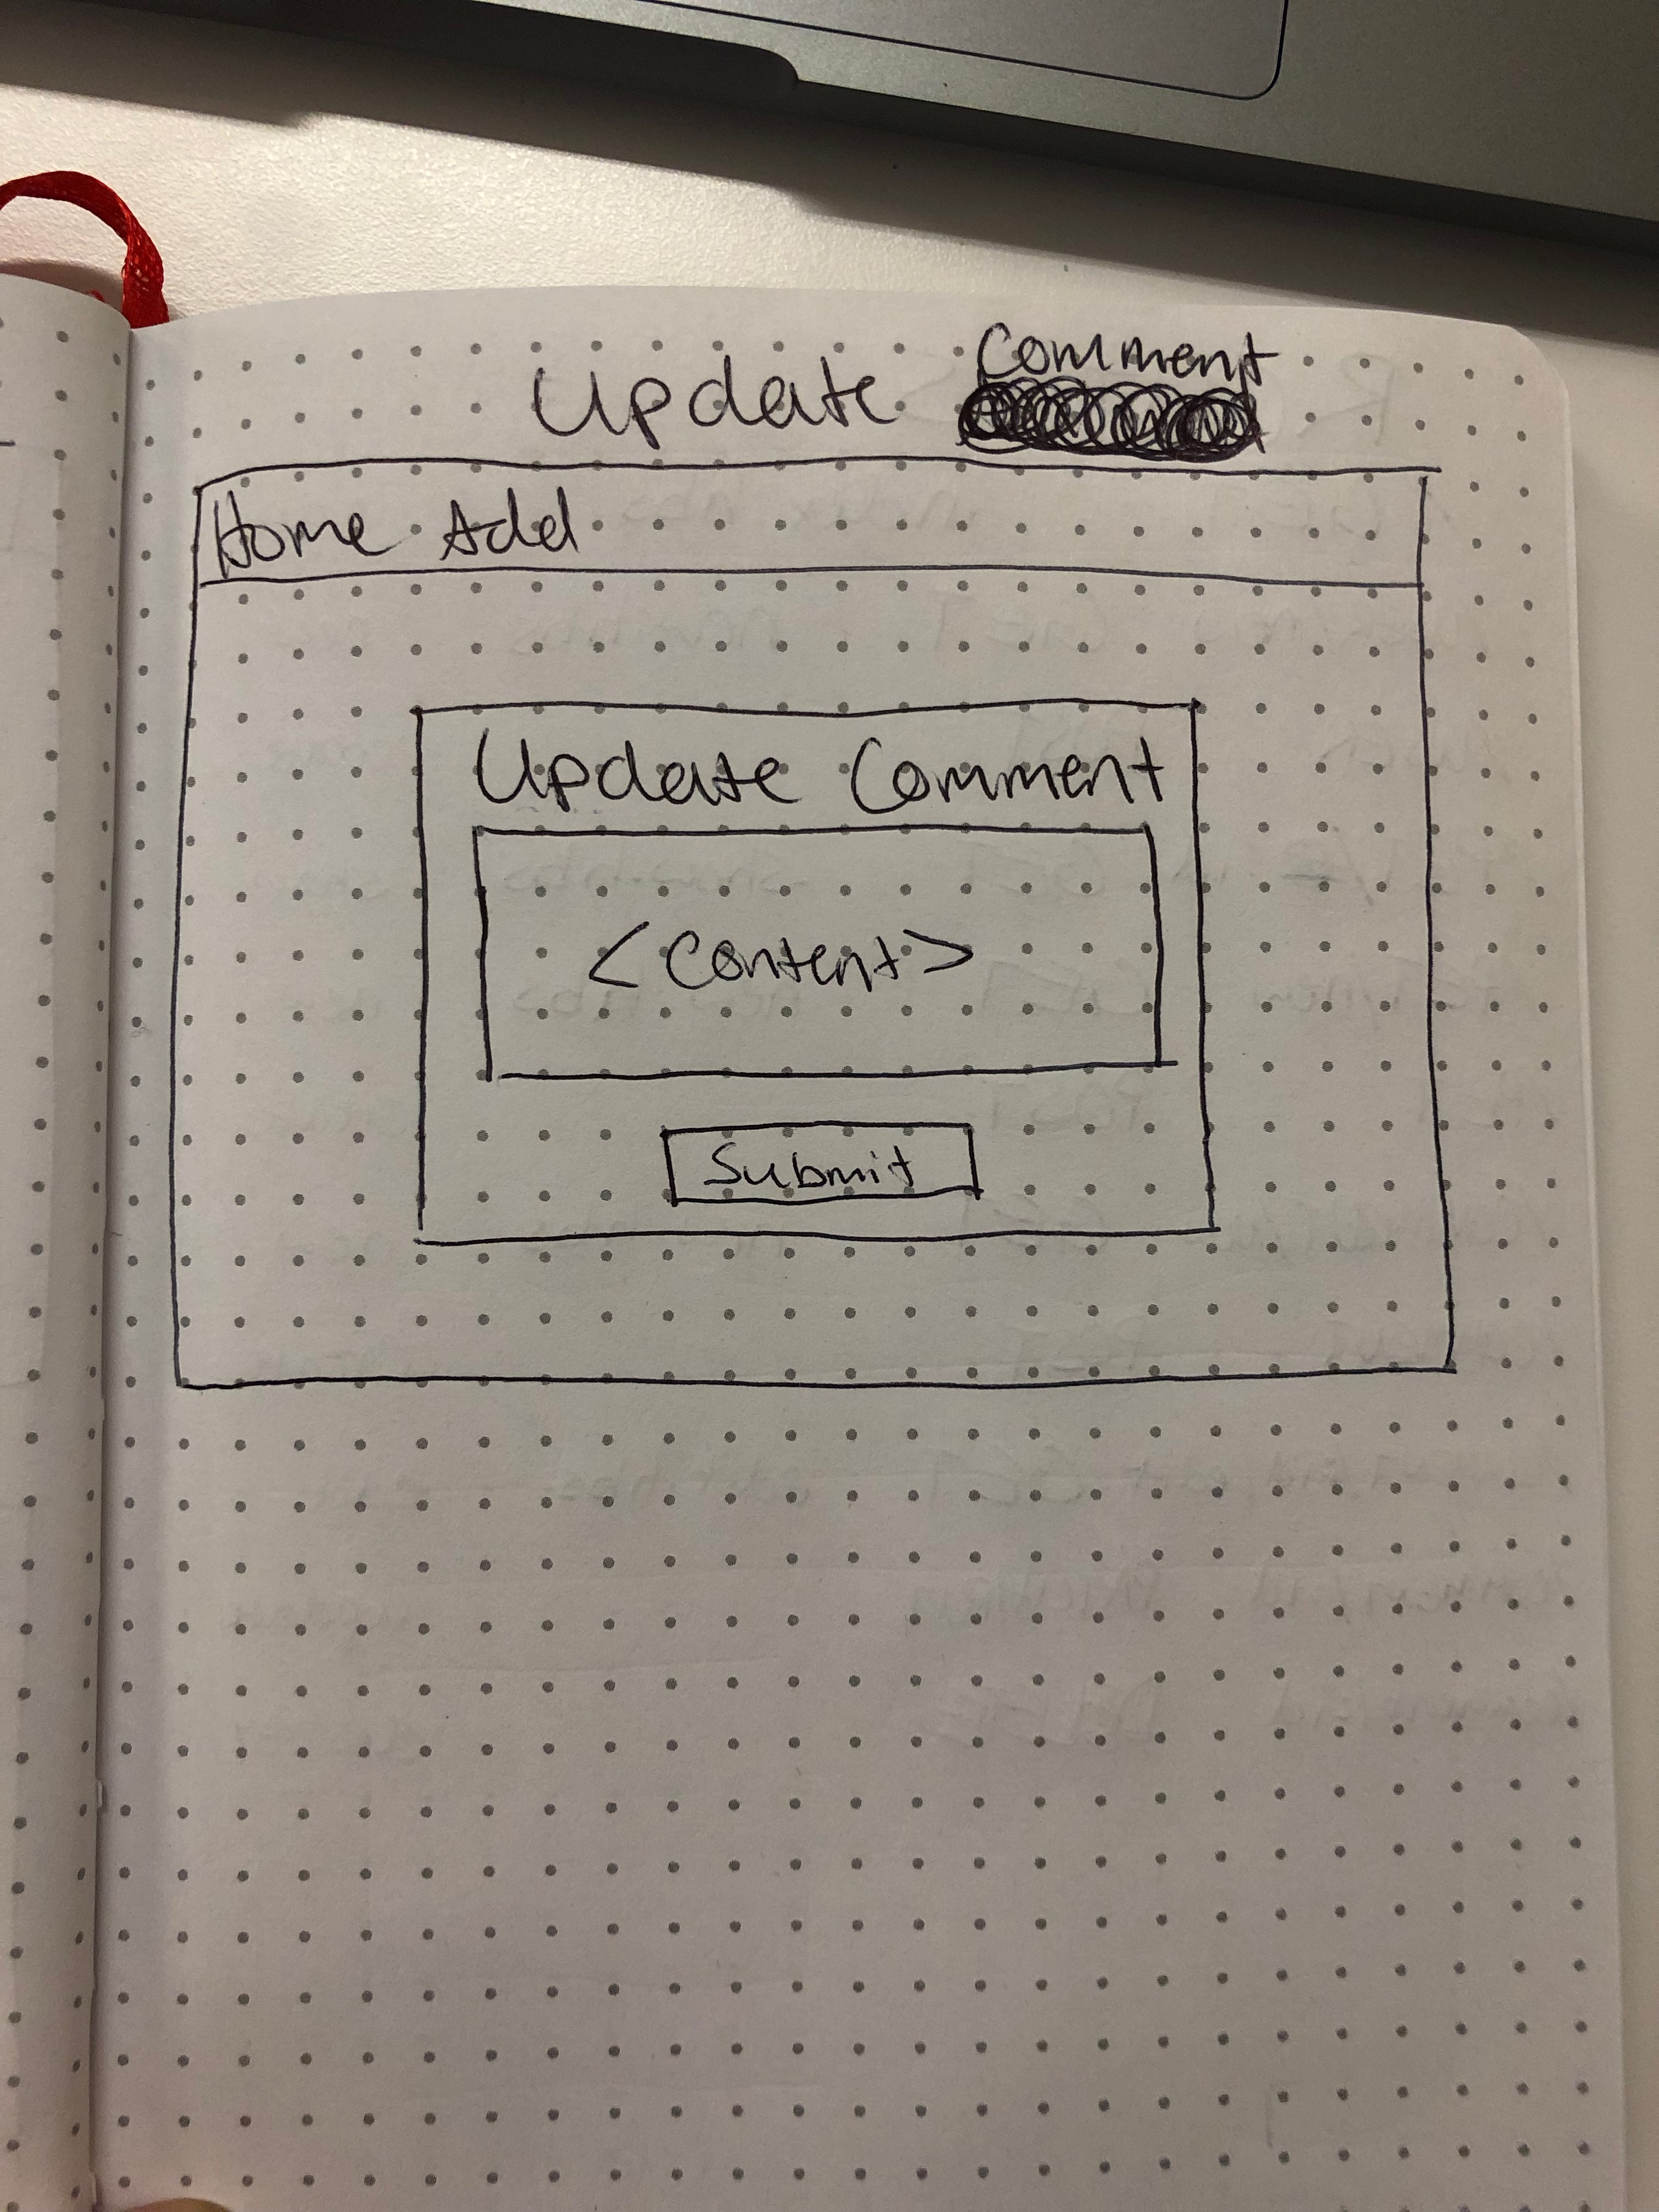 Update Comment
Home Add
Update Comment
<Content>
Submit